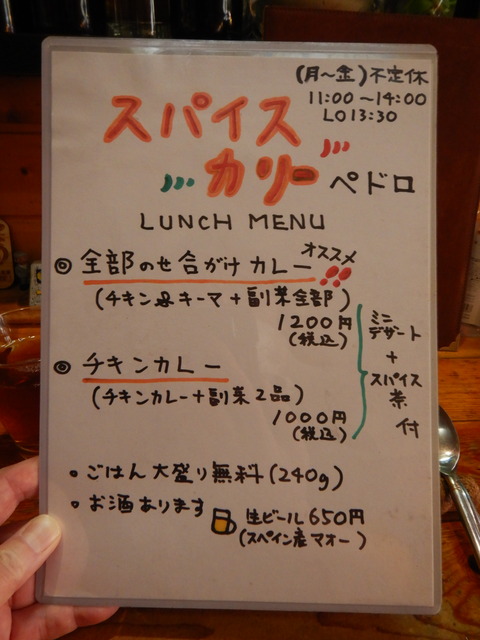 (月〜金)不定休
11:00〜14:00
LO13:30
スパイス
カリー ペドロ
LUNCH MENU
◎ 全部のせ合がけカレー オススメ
(チキン&キーマ+副菜全部)
1200円
(税込)
◎ チキンカレー
(チキンカレー+副菜2品)
1000円
(税込)
ミニ
デザート
+
スパイス
茶
付
・ごはん大盛り無料(240g)
・お酒あります
生ビール650円
(スペイン産マオー)